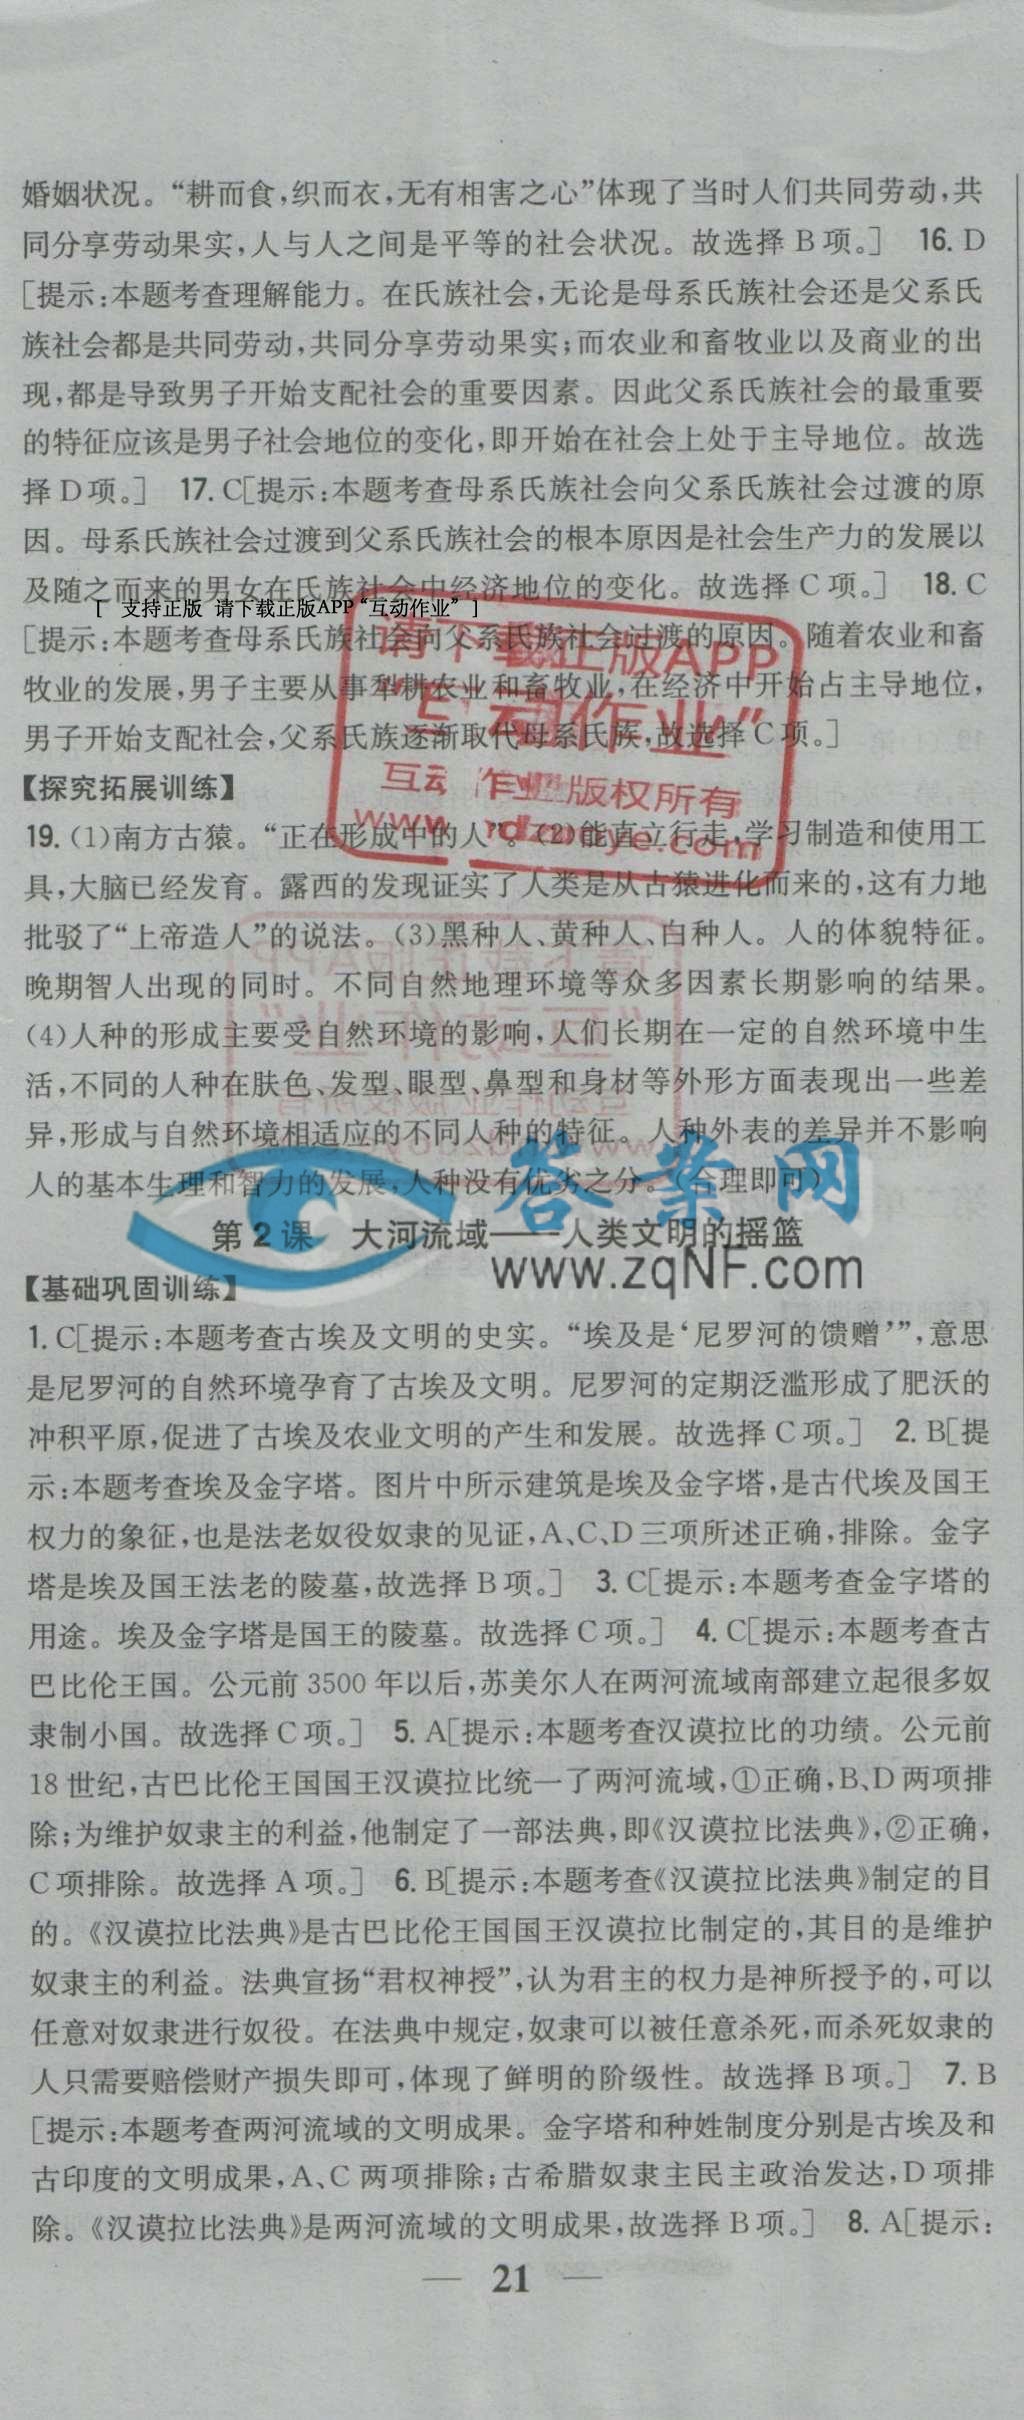 婚姻状况。“耕而食,织而衣,无有相害之心”体现了当时人们共同劳动,共
同分享劳动果实,人与人之间是平等的社会状况。故选择 B 项。] 16. D
[提示:本题考查理解能力。在氏族社会,无论是母系氏族社会还是父系氏
族社会都是共同劳动,共同分享劳动果实;而农业和畜牧业以及商业的出
现,都是导致男子开始支配社会的重要因素。因此父系氏族社会的最重要
的特征应该是男子社会地位的变化,即开始在社会上处于主导地位。故选
择 D 项。] 17. C[提示:本题考查母系氏族社会向父系氏族社会过渡的原
因。母系氏族社会过渡到父系氏族社会的根本原因是社会生产力的发展以
及随之而来的男女在氏族社会中经济地位的变化。故选择 C 项。] 18. C
[ 支持正版 请下载正版APP “互动作业” ]
[提示:本题考查母系氏族社会向父系氏族社会过渡的原因。随着农业和畜
牧业的发展,男子主要从事犁耕农业和畜牧业,在经济中开始占主导地位,
男子开始支配社会,父系氏族逐渐取代母系氏族,故选择 C 项。]
请下载正版APP
“互动作业”
互动作业版权所有
【探究拓展训练】
19. (1)南方古猿。“正在形成中的人”。(2)能直立行走,学习制造和使用工
具,大脑已经发育。露西的发现证实了人类是从古猿进化而来的,这有力地
批驳了“上帝造人”的说法。(3)黑种人、黄种人、白种人。人的体貌特征。
晚期智人出现的同时。不同自然地理环境等众多因素长期影响的结果。
(4)人种的形成主要受自然环境的影响,人们长期在一定的自然环境中生
活,不同的人种在肤色、发型、眼型、鼻型和身材等外形方面表现出一些差
异,形成与自然环境相适应的不同人种的特征。人种外表的差异并不影响
人的基本生理和智力的发展,人种没有优劣之分。(合理即可)
答案网
www.zqNF.com
第 2 课 大河流域——人类文明的摇篮
【基础巩固训练】
1. C[提示:本题考查古埃及文明的史实。“埃及是‘尼罗河的馈赠’”,意思
是尼罗河的自然环境孕育了古埃及文明。尼罗河的定期泛滥形成了肥沃的
冲积平原,促进了古埃及农业文明的产生和发展。故选择 C 项。] 2. B[提
示:本题考查埃及金字塔。图片中所示建筑是埃及金字塔,是古代埃及国王
权力的象征,也是法老奴役奴隶的见证,A、C、D 三项所述正确,排除。金字
塔是埃及国王法老的陵墓,故选择 B 项。] 3. C[提示:本题考查金字塔的
用途。埃及金字塔是国王的陵墓。故选择 C 项。] 4. C[提示:本题考查古
巴比伦王国。公元前 3500 年以后,苏美尔人在两河流域南部建立起很多奴
隶制小国。故选择 C 项。] 5. A[提示:本题考查汉谟拉比的功绩。公元前
18 世纪,古巴比伦王国国王汉谟拉比统一了两河流域,①正确,B、D 两项排
除;为维护奴隶主的利益,他制定了一部法典,即《汉谟拉比法典》,②正确,
C 项排除。故选择 A 项。] 6. B[提示:本题考查《汉谟拉比法典》制定的目
的。《汉谟拉比法典》是古巴比伦王国国王汉谟拉比制定的,其目的是维护
奴隶主的利益。法典宣扬“君权神授”,认为君主的权力是神所授予的,可以
任意对奴隶进行奴役。在法典中规定,奴隶可以被任意杀死,而杀死奴隶的
人只需要赔偿财产损失即可,体现了鲜明的阶级性。故选择 B 项。] 7. B
[提示:本题考查两河流域的文明成果。金字塔和种姓制度分别是古埃及和
古印度的文明成果,A、C 两项排除;古希腊奴隶主民主政治发达,D 项排
除。《汉谟拉比法典》是两河流域的文明成果,故选择 B 项。] 8. A[提示:
— 21 —